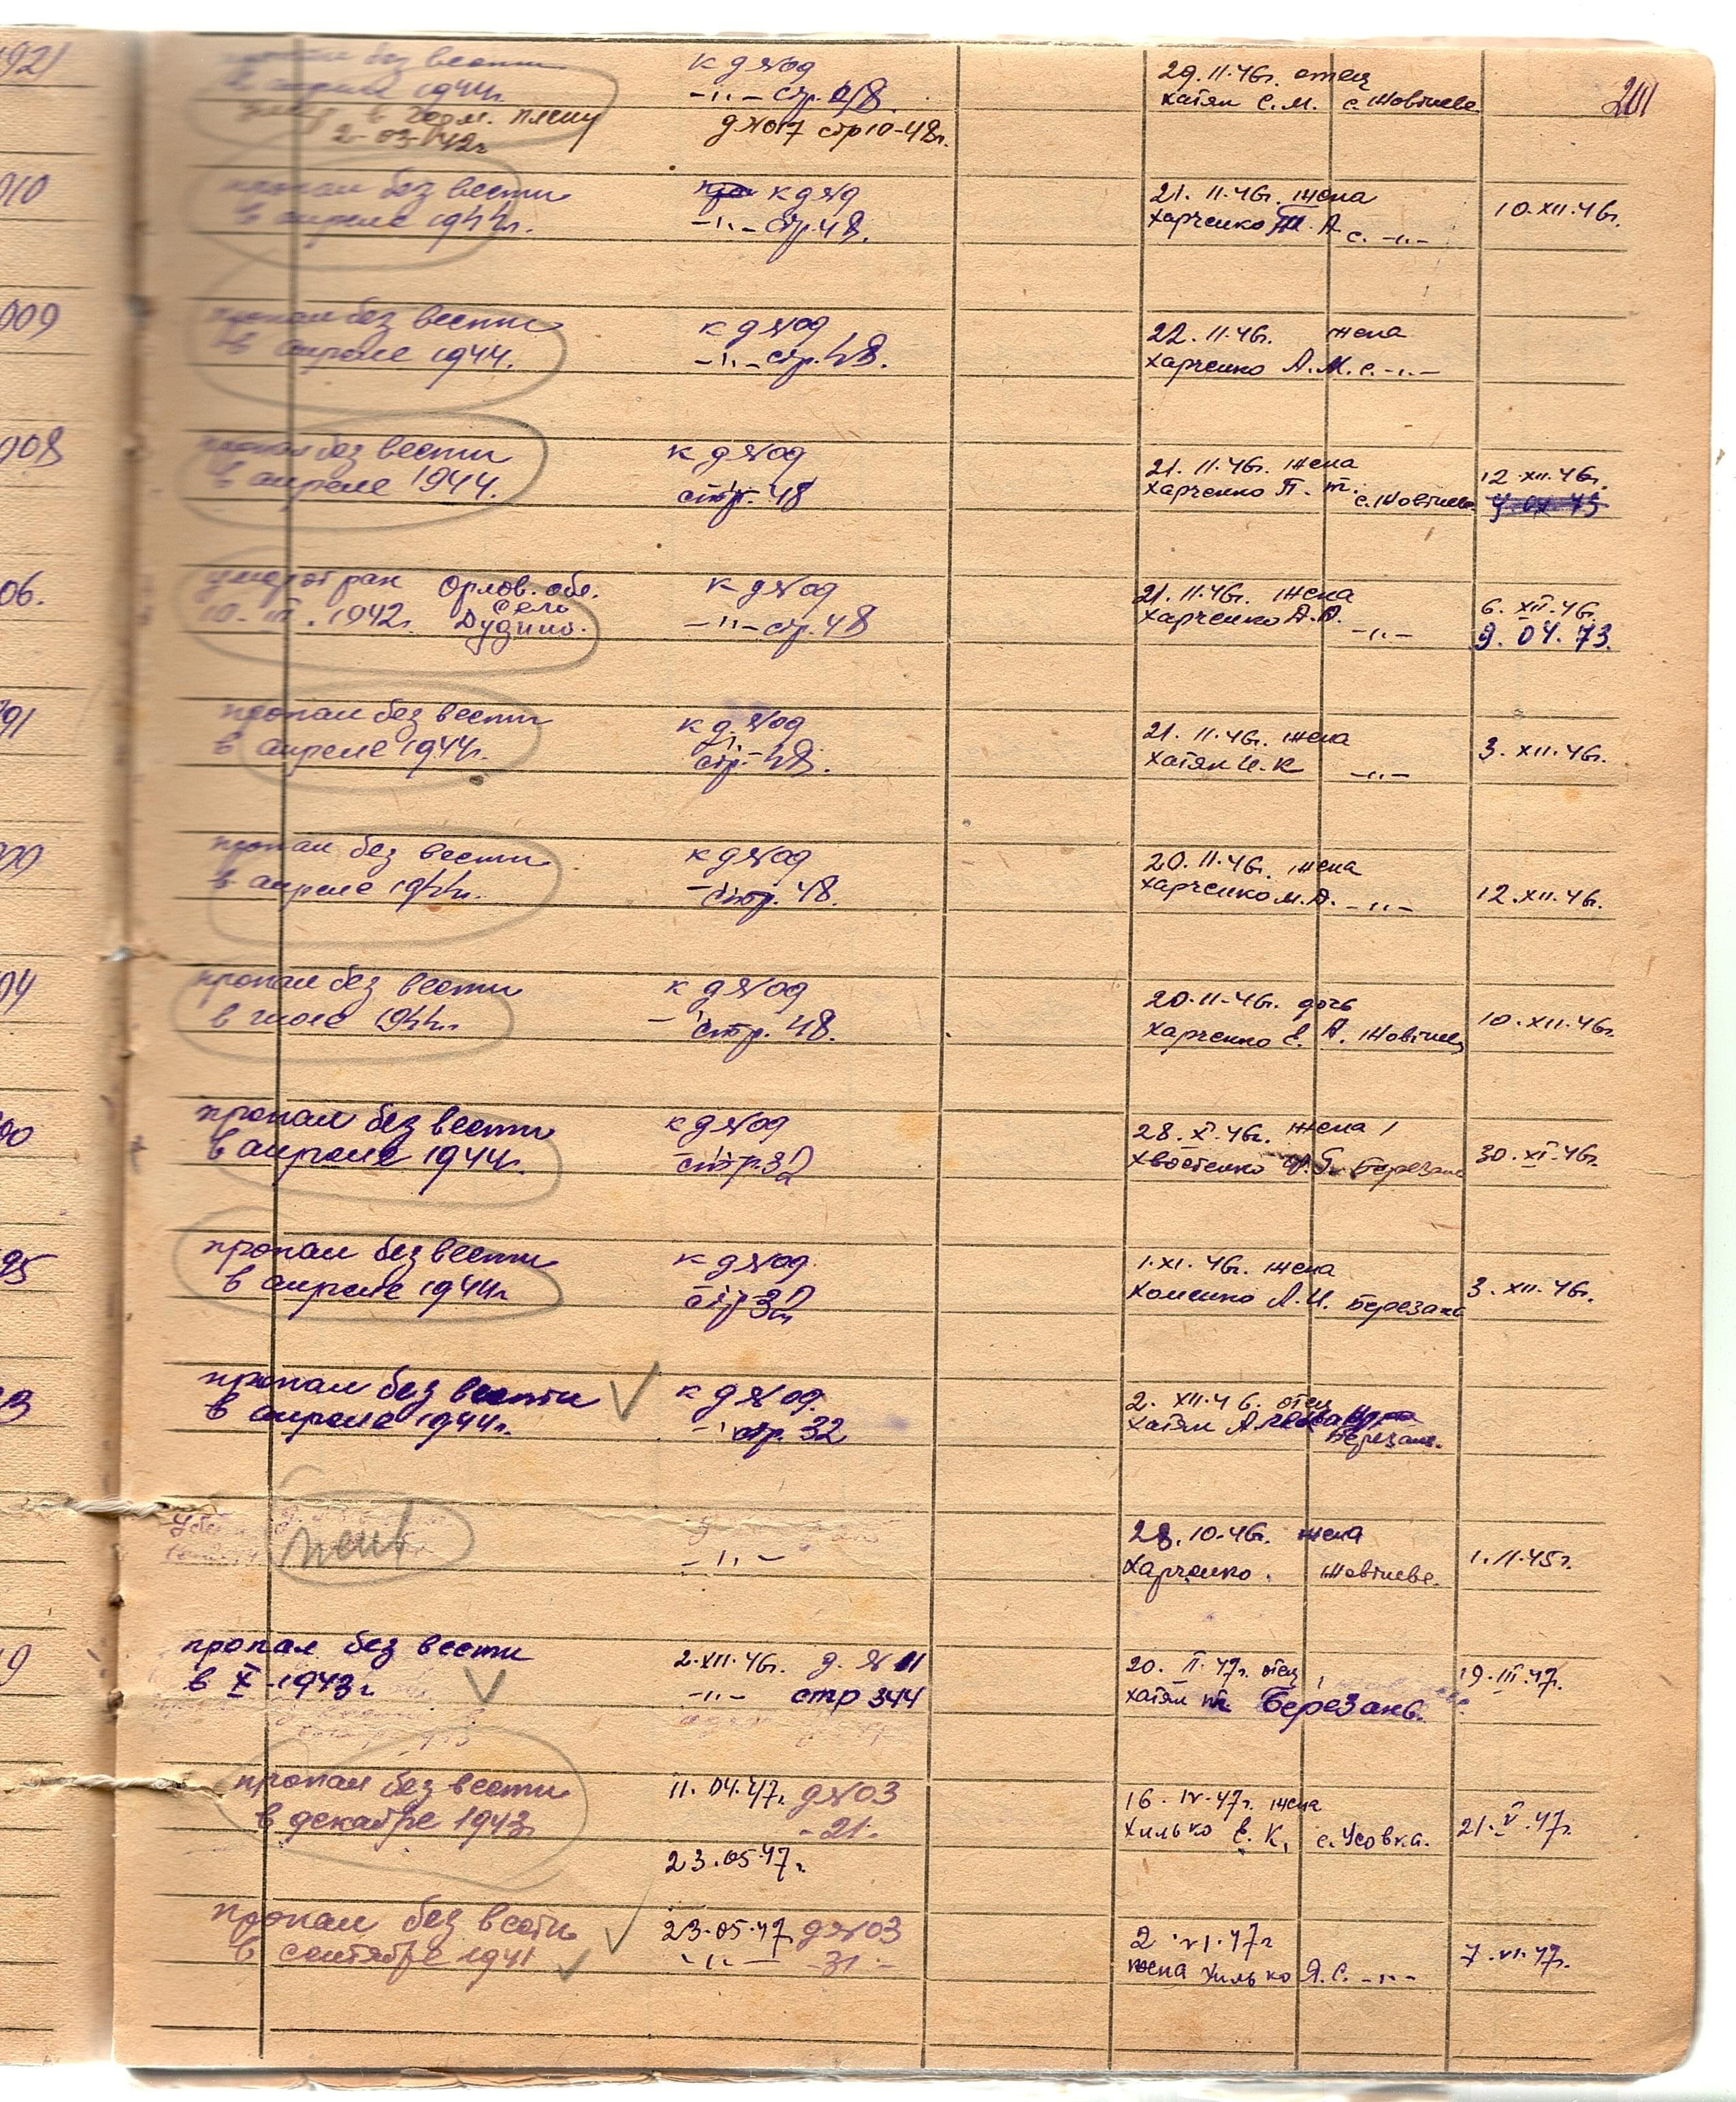 921
пропал без вести
в апреле 1944г.
умер в герм. плену
2-03-42г
к д №09
-"- стр. 48.
д №017 стр 10-48г.
29.11.46г. отец
Хатян С.М. с. Жовтнева
201
010
пропал без вести
в апреле 1944г.
к д №9
-"- стр. 48.
21. 11.46г. жена
Харченко М. А. с. -"-
10.XII.46г.
009
пропал без вести
в апреле 1944.
к д №09
-"- стр. 48.
22.11.46г. жена
Харченко А.М. с. -"-
008
пропал без вести
в апреле 1944.
к д №09
стр. 48
21. 11.46г. жена
Харченко П. т. с. Жовтнева
12.XII.46г.
06.
умер от ран Орлов. обл.
село
10. III. 1942г. Дудино.
к д №09
-"- стр. 48
21.11.46г. жена
Харченко А.А. -"-
6. XII.46г.
9. 04. 73.
91
пропал без вести
в апреле 1944г.
к д №09
-"-
стр. 48.
21. 11.46г. жена
Хатян И.К -"-
3. XII.46г.
пропал без вести
в апреле 1944г.
к д №09
-"- стр. 48.
20.11.46г. жена
Харченко М.А. -"-
12.XII.46г.
04
пропал без вести
в июле 1944г.
к д №09
-"- стр. 48.
20.11.46г. дочь
Харченко Е. А. Жовтнев
10.XII.46г.
00
пропал без вести
в апреле 1944г.
к д №09
стр. 32
28.X.46г. жена
Хвостенко Березань
30.XI.46г.
95
пропал без вести
в апреле 1944г
к д №09.
стр 32
1.XI.46г. жена
Хоменко А.И. Березань
3. XII.46г.
3
пропал без вести
в апреле 1944г.
к д №09.
-"- стр. 32
2. XII.46. отец
Хатян Березань.
-"-
28.10.46г. жена
Харченко. Жовтнева.
1.11.45г.
9
пропал без вести
в X-1943г
2.XII.46г. д. №11
-"- стр 344
20. II.47г. отец
Хатян Березань.
19.III.47г.
пропал без вести
в декабре 1943г
11.04.47г. д №03
-21-
23.05.47г.
16. IV.47г. жена
Хилько Е. К. с. Усовка.
21.V.47г.
пропал без вести
в сентябре 1941
23.05.47. д №03
-"- -31-
2.VI.47г
жена Хилько Я.С. -"-
7.VI.47г.